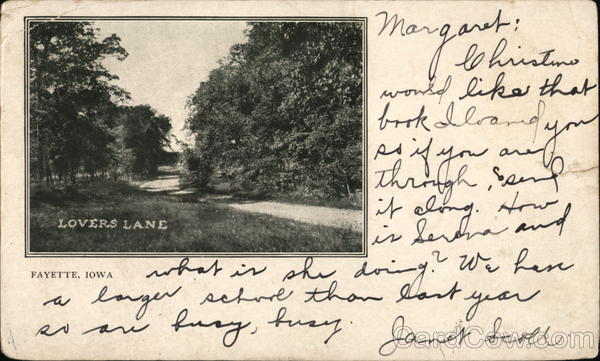 Margaret:
Christine
would like that
book I loaned you
so if you are
through, & send
it along. How
is Serena and
LOVERS LANE
FAYETTE, IOWA
what is she doing? We have
a larger school than last year
so are busy, busy.
Janet
CardCow.com